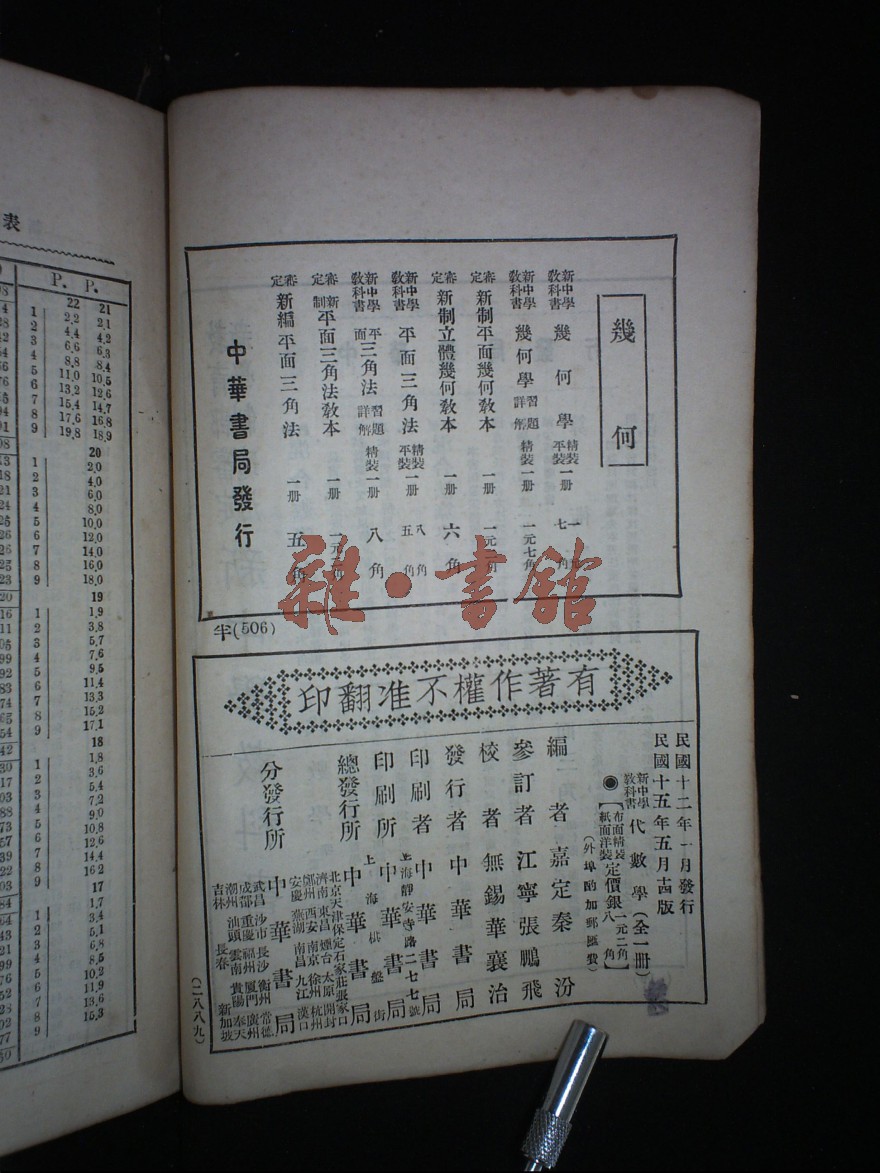 表
P. P.
22 21
1 2.2 2.1
2 4.4 4.2
3 6.6 6.3
4 8.8 8.4
5 11.0 10.5
6 13.2 12.6
7 15.4 14.7
8 17.6 16.8
9 19.8 18.9
20
1 2.0
2 4.0
3 6.0
4 8.0
5 10.0
6 12.0
7 14.0
8 16.0
9 18.0
19
1 1.9
2 3.8
3 5.7
4 7.6
5 9.5
6 11.4
7 13.3
8 15.2
9 17.1
18
1 1.8
2 3.6
3 5.4
4 7.2
5 9.0
6 10.8
7 12.6
8 14.4
9 16.2
17
1 1.7
2 3.4
3 5.1
4 6.8
5 8.5
6 10.2
7 11.9
8 13.6
9 15.3
幾何
新中學教科書 幾何學 精裝平裝 一册
新中學教科書 幾何學習題詳解 精裝 一册 一元七角
審定 新制平面幾何教本 一册
審定 新制立體幾何教本 一册 六角
新中學教科書 平面三角法 精裝平裝 一册 八角五角
新中學教科書 平面三角法習題詳解 精裝 一册 八角
審定 新制平面三角法教本 一册
審定 新編平面三角法 一册 五角
中華書局發行
半(506)
雜·書館
有著作權不准翻印
民國十二年一月發行
民國十五年五月十四版
新中學教科書 代數學(全一册)
◉【布面精裝 紙面洋裝 定價銀 一元二角 八角】
(外埠酌加郵匯費)
編者 嘉定秦汾
參訂者 江寧張鵬飛
校者 無錫華襄治
發行者 中華書局
印刷者 中華書局
上海靜安寺路二七七號
印刷所 中華書局
上海棋盤街
總發行所 中華書局
北京天津保定石家莊張家口
濟南東昌煙台太原開封
鄭州西安南京徐州杭州
安慶蕪湖南昌九江漢口
分發行所 中華書局
武昌沙市長沙衡州常德
成都重慶福州廈門廣州
潮州汕頭雲南貴陽奉天
吉林長春新加坡
(二八八九)